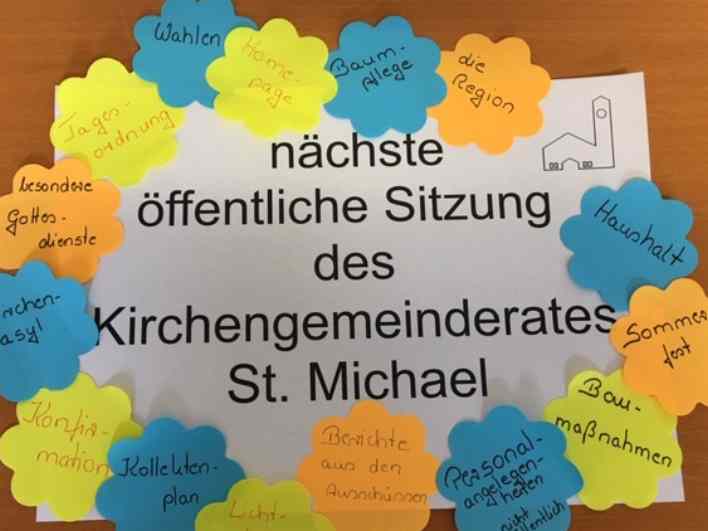 Wahlen
Home-
page
Baum-
pflege
die
Region
Tages-
ordnung
nächste
öffentliche Sitzung
des
Kirchengemeinderates
St. Michael
besondere
Gottes-
dienste
Haushalt
rchen-
asyl
Sommer
fest
Konfir-
mation
Bau-
maßnahmen
Kollekten-
plan
Berichte
aus den
Ausschüssen
Personal-
angelegen-
heiten
nicht
Licht-